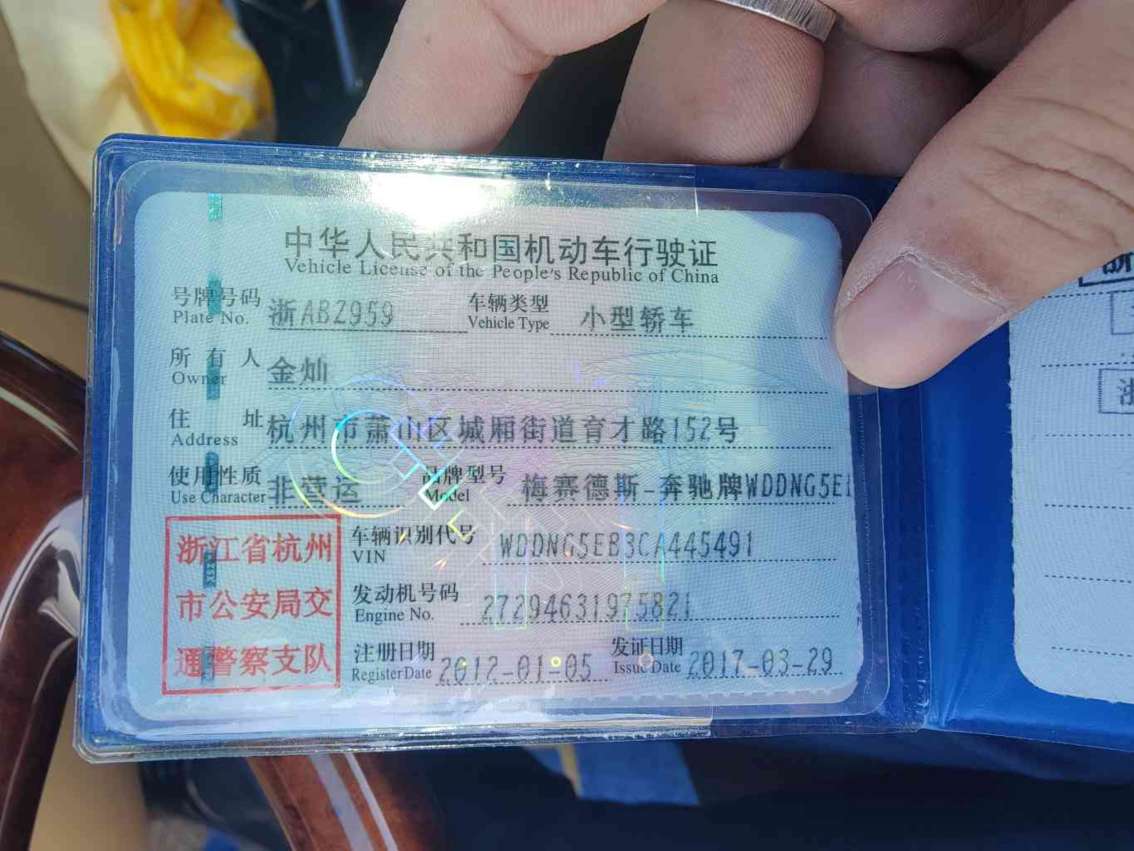 中华人民共和国机动车行驶证
Vehicle License of the People's Republic of China
号牌号码 浙ABZ959 车辆类型 小型轿车
Plate No. Vehicle Type
所有人 金灿
Owner
住址 杭州市萧山区城厢街道育才路152号
Address
使用性质 非营运 品牌型号 梅赛德斯-奔驰牌WDDNG5E
Use Character Model
浙江省杭州
市公安局交
通警察支队
车辆识别代号 WDDNG5EB3CA445491
VIN
发动机号码 27294631975821
Engine No.
注册日期 2012-01-05 发证日期 2017-03-29
Register Date Issue Date